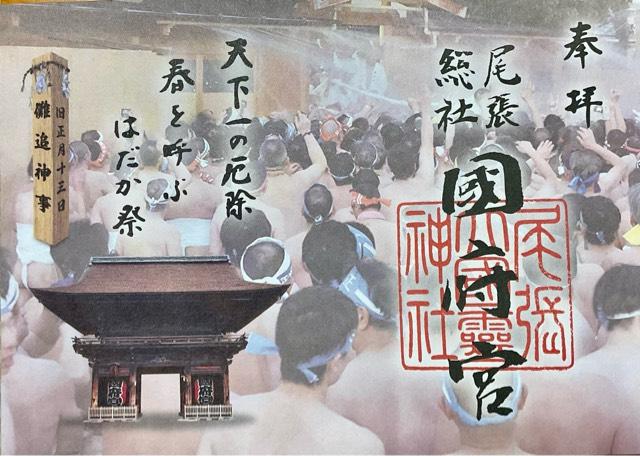 奉拝
尾張
総社
國府宮
尾張
大國霊
神社
天下一の厄除
春を呼ぶ
はだか祭
旧正月十三日
儺追神事